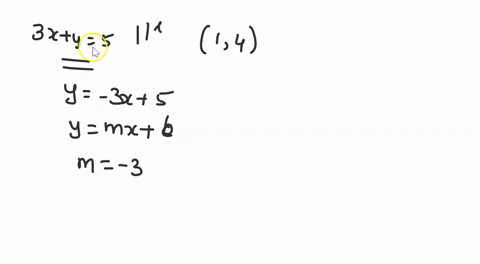 3x+y=5 ||ˡ (1,4)
y=-3x+5
y=mx+b
m=-3